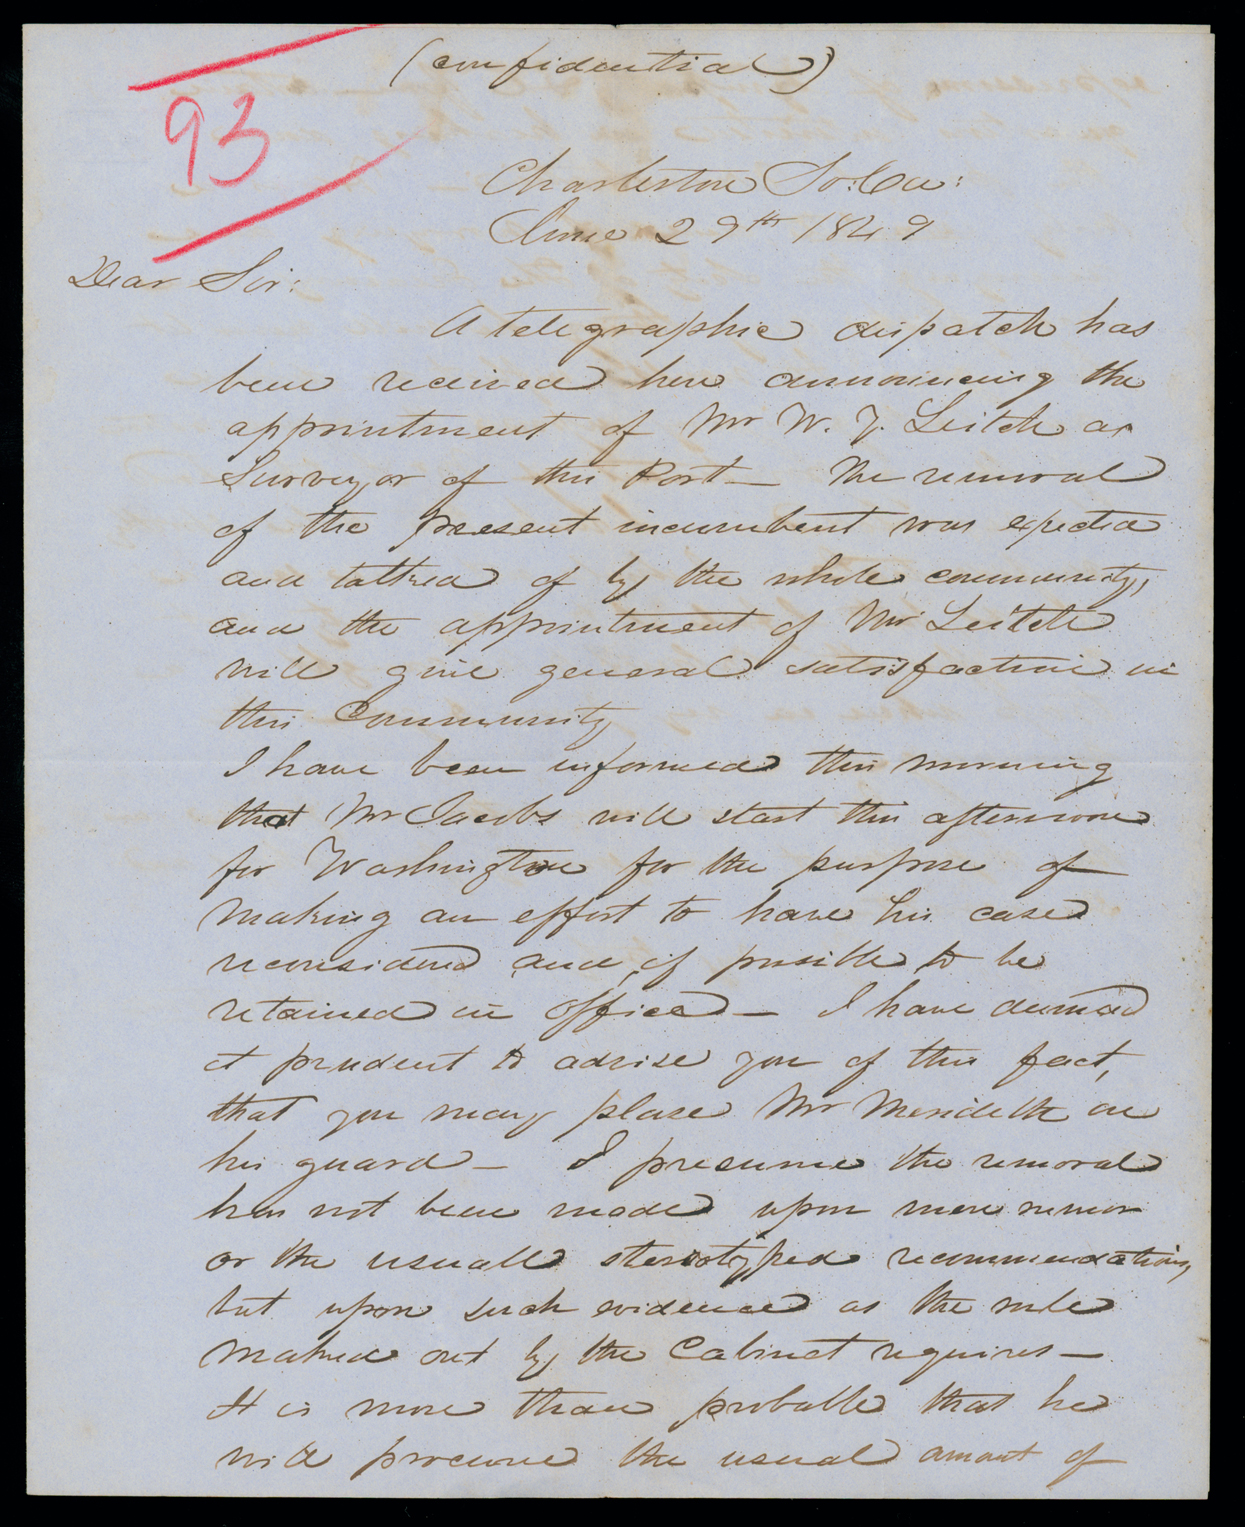 (confidential)
93
Charleston So: Ca:
June 29th 1849
Dear Sir:
A telegraphic dispatch has
been received here announcing the
appointment of Mr W. Y. Leitch as
Surveyor of this Port — The removal
of the present incumbent was expected
and talked of by the whole community,
and the appointment of Mr Leitch
will give general satisfaction in
this Community
I have been informed this morning
that Mr Jacobs will start this afternoon
for Washington for the purpose of
making an effort to have his case
reconsidered and, if possible to be
retained in office — I have deemed
it prudent to advise you of this fact,
that you may place Mr Meridith on
his guard — I presume the removal
has not been made upon mere rumor
or the usuall stereotyped recommendations,
but upon such evidence as the rule
marked out by the Cabinet requires —
It is more than probable that he
will procure the usual amount of